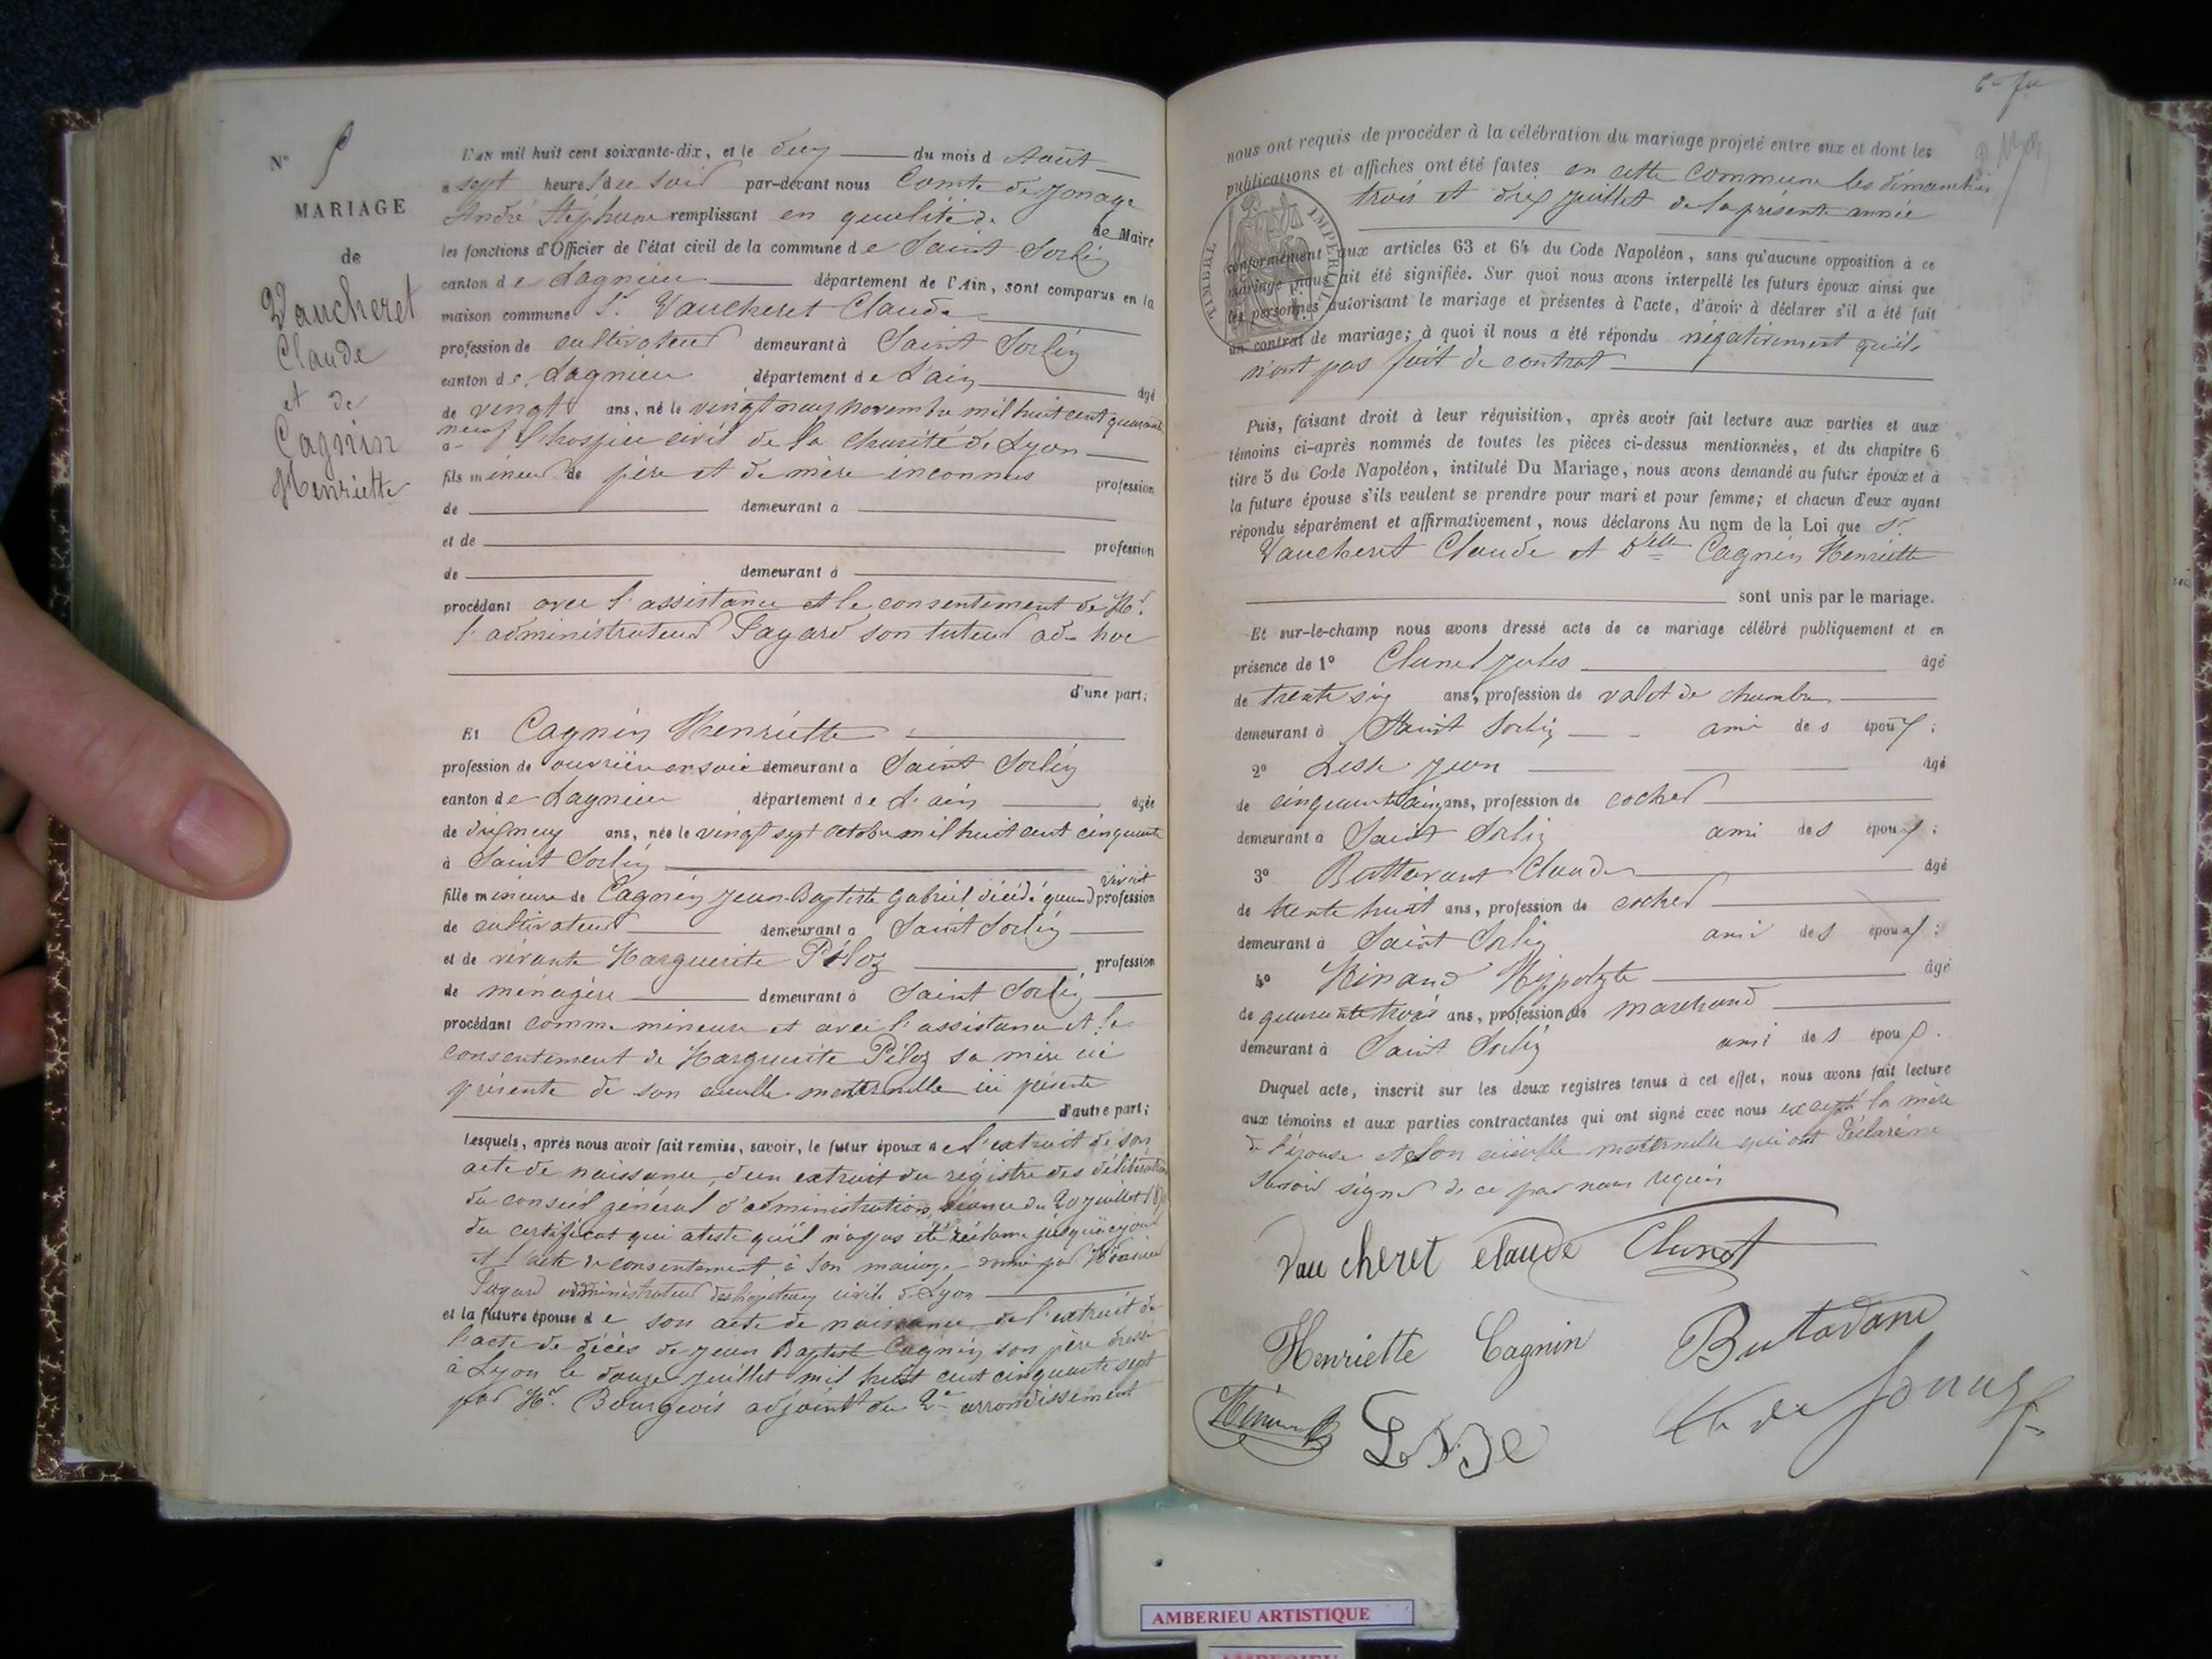 N° 5
MARIAGE
de
Vaucheret
Claude
et de
Cagnin
Henriette
L'AN mil huit cent soixante-dix, et le deux du mois d Août
à sept heures du soir par-devant nous Comte de Jonage
André Stéphane remplissant en qualité de de Maire
les fonctions d'Officier de l'état civil de la commune de Saint Sorlin
canton de Lagnieu département de l'Ain, sont comparus en la
maison commune Sr Vaucheret Claude
profession de cultivateur demeurant à Saint Sorlin
canton de Lagnieu département de L'ain âgé
de vingt ans, né le vingt neuf novembre mil huit cent quarante
neuf
à l'hospice civil de la charité de Lyon
fils mineur de père et de mère inconnus profession
de demeurant à
et de profession
de demeurant à
procédant avec l'assistance et le consentement de Mr.
l'administrateur Sayard son tuteur ad-hoc
d'une part;
Et Cagnin Henriette
profession de ouvrière en soie demeurant à Saint Sorlin
canton de Lagnieu département de L'ain âgée
de dix neuf ans, née le vingt sept octobre mil huit cent cinquante
à Saint Sorlin
fille mineure de Cagnin Jean-Baptiste Gabriel décédé quand vivait profession
de cultivateur demeurant à Saint Sorlin
et de vivante Marguerite Péloz profession
de ménagère demeurant à Saint Sorlin
procédant comme mineure et avec l'assistance et le
consentement de Marguerite Péloz sa mère ici
présente de son aieulle maternelle ici présente
d'autre part;
Lesquels, après nous avoir fait remise, savoir, le futur époux de l'extrait de son
acte de naissance, d'un extrait du régistre des délibérations
du conseil général d'administration, séance du 20 juillet 1870
du certificat qui ateste qu'il n'a pas été réclamé jusqu'à ce jour
et l'acte de consentement à son mariage donné par Monsieur
Sayard administrateur des hopitaux civils de Lyon
et la future épouse de son acte de naissance, de l'extrait de
l'acte de décès de Jean Baptiste Cagnin son père dressé
à Lyon le douze juillet mil huit cent cinquante sept
par Mr. Bourgeois adjoint du 2e arrondissement
nous ont requis de procéder à la célébration du mariage projeté entre eux et dont les
publications et affiches ont été faites en cette commune les dimanches
trois et dix juillet de la présente année
TIMBRE IMPERIAL
conformément aux articles 63 et 64 du Code Napoléon, sans qu'aucune opposition à ce
mariage nous ait été signifiée. Sur quoi nous avons interpellé les futurs époux ainsi que
les personnes autorisant le mariage et présentes à l'acte, d'avoir à déclarer s'il a été fait
un contrat de mariage; à quoi il nous a été répondu négativement qu'ils
n'ont pas fait de contrat
Puis, faisant droit à leur réquisition, après avoir fait lecture aux parties et aux
témoins ci-après nommés de toutes les pièces ci-dessus mentionnées, et du chapitre 6
titre 5 du Code Napoléon, intitulé Du Mariage, nous avons demandé au futur époux et à
la future épouse s'ils veulent se prendre pour mari et pour femme; et chacun d'eux ayant
répondu séparément et affirmativement, nous déclarons Au nom de la Loi que Sr
Vaucheret Claude et Delle Cagnin Henriette
sont unis par le mariage.
Et sur-le-champ nous avons dressé acte de ce mariage célébré publiquement et en
présence de 1° Clunet Jules âgé
de trente six ans, profession de valet de chambre
demeurant à Saint Sorlin ami des époux;
2° Jean âgé
de cinquante cinq ans, profession de cocher
demeurant à Saint Sorlin ami des époux;
3° Claude âgé
de trente huit ans, profession de cocher
demeurant à Saint Sorlin ami des époux;
4° Hippolyte âgé
de quarante trois ans, profession de marchand
demeurant à Saint Sorlin ami des époux.
Duquel acte, inscrit sur les deux registres tenus à cet effet, nous avons fait lecture
aux témoins et aux parties contractantes qui ont signé avec nous excepté la mère
de l'épouse et son aieulle maternelle qui ont déclaré ne
savoir signer de ce par nous requis
Vaucheret claude Clunet
Henriette Cagnin Buttavand
de Jonage
AMBERIEU ARTISTIQUE
AMBERIEU